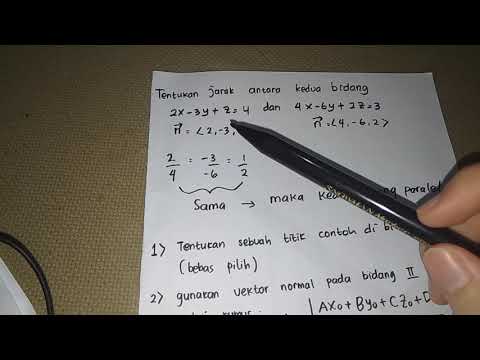 Tentukan jarak antara kedua bidang
2x-3y+z=4 dan 4x-6y+2z=3
n⃗ = <2,-3, n⃗ = <4,-6,2>
2/4 = -3/-6 = 1/2
Sama → maka paralel
1) Tentukan sebuah titik contoh di
(bebas pilih)
2) gunakan vektor normal pada bidang II
| Ax₀ + By₀ + Cz₀ + D